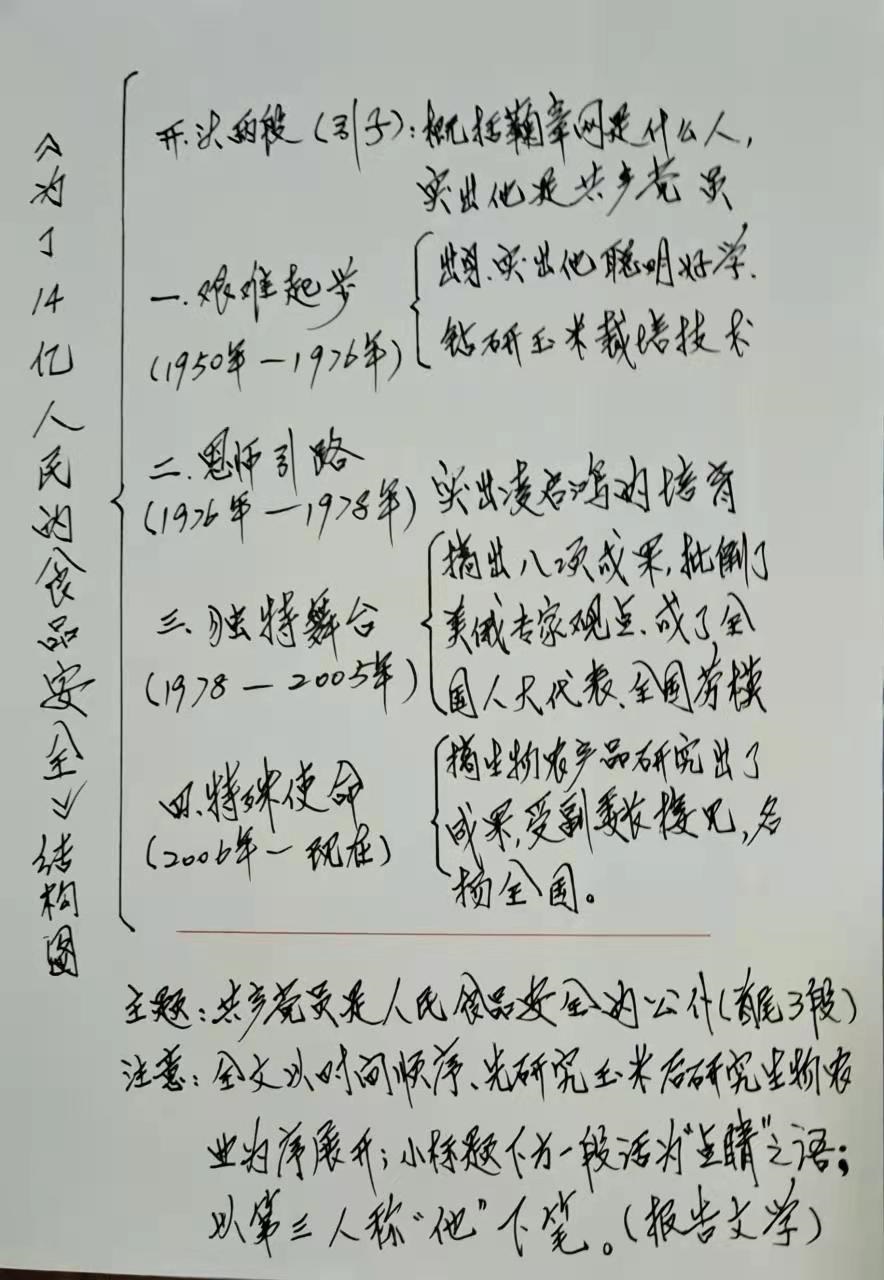 《为了14亿人民的食品安全》结构图
开头两段（引子）：概括鞠章网是什么人，
突出他是共产党员
一．艰难起步
（1950年—1976年）
出身、突出他聪明好学、
钻研玉米栽培技术
二．恩师引路
（1976年—1978年）
突出凌启鸿的培育
三、独特舞台
（1978—2005年）
搞出八项成果，批倒了
美俄专家观点、成了全
国人大代表、全国劳模
四．特殊使命
（2006年—现在）
搞生物农产品研究出了
成果，受副委长接见，名
扬全国。
主题：共产党员是人民食品安全的公仆（首尾3段）
注意：全文以时间顺序、先研究玉米后研究生物农
业为序展开；小标题下方一段话为“点睛”之语；
以第三人称“他”下笔。（报告文学）